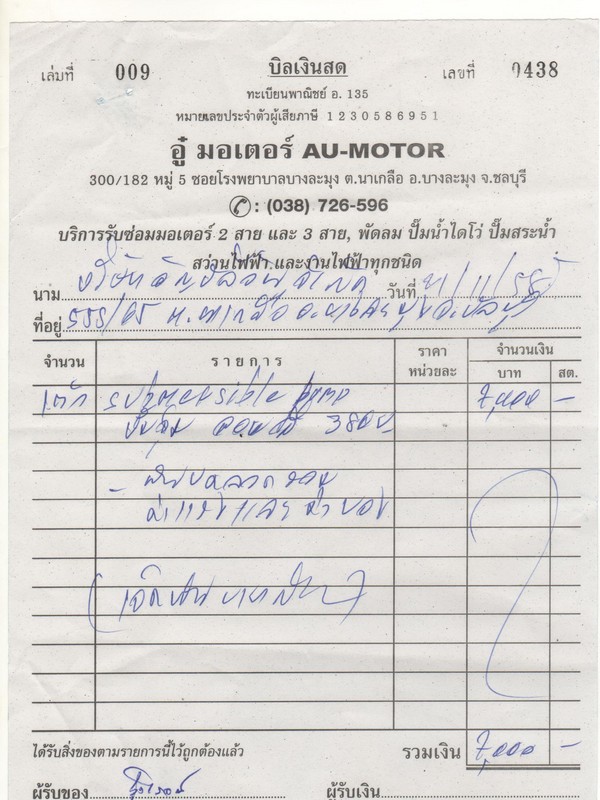 เล่มที่ 009 บิลเงินสด เลขที่ 0438
ทะเบียนพาณิชย์ อ. 135
หมายเลขประจำตัวผู้เสียภาษี 1 2 3 0 5 8 6 9 5 1
อู๋ มอเตอร์ AU-MOTOR
300/182 หมู่ 5 ซอยโรงพยาบาลบางละมุง ต.นาเกลือ อ.บางละมุง จ.ชลบุรี
: (038) 726-596
บริการรับซ่อมมอเตอร์ 2 สาย และ 3 สาย, พัดลม ปั๊มน้ำไดโว่ ปั๊มสระน้ำ
สว่านไฟฟ้า และงานไฟฟ้าทุกชนิด
นาม บริษัท จำกัด วันที่
ที่อยู่ 555/65 ต.นาเกลือ อ.บางละมุง จ.ชลบุรี
จำนวน รายการ ราคาหน่วยละ จำนวนเงิน
บาท สต.
1 ตัว submersible pump 7,000 –
380V
– ค่าแรง และ ค่าของ
ได้รับสิ่งของตามรายการนี้ไว้ถูกต้องแล้ว รวมเงิน 7,000 –
ผู้รับของ ผู้รับเงิน